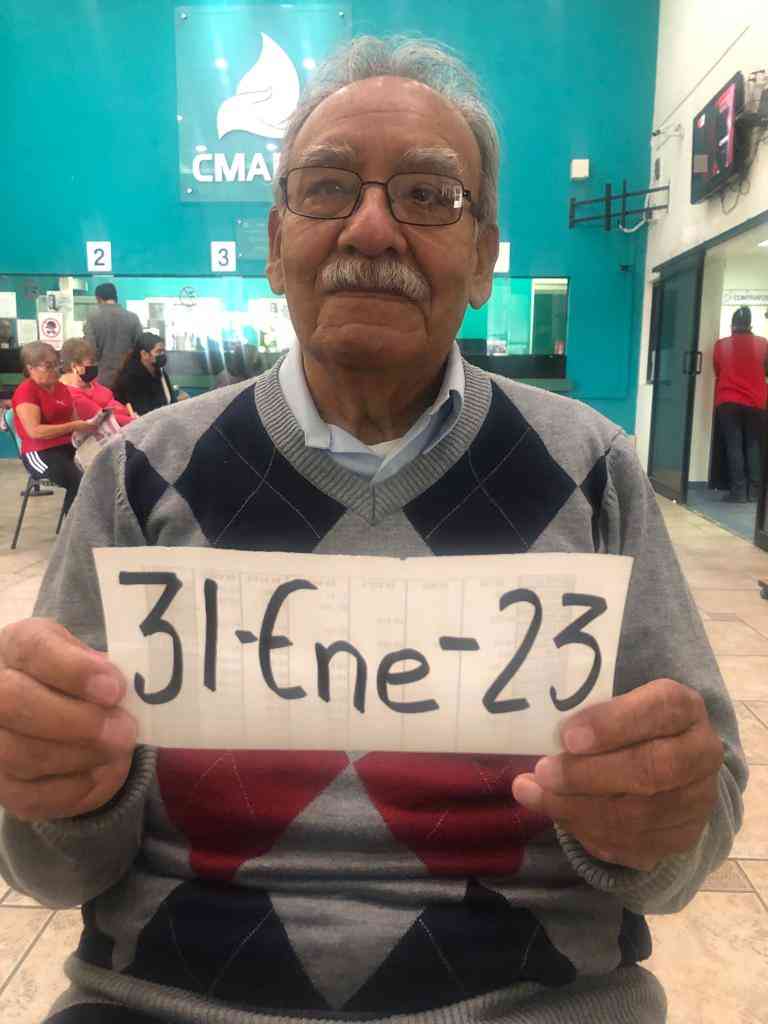 CMA
2
3
CONTRATOS
31-Ene-23